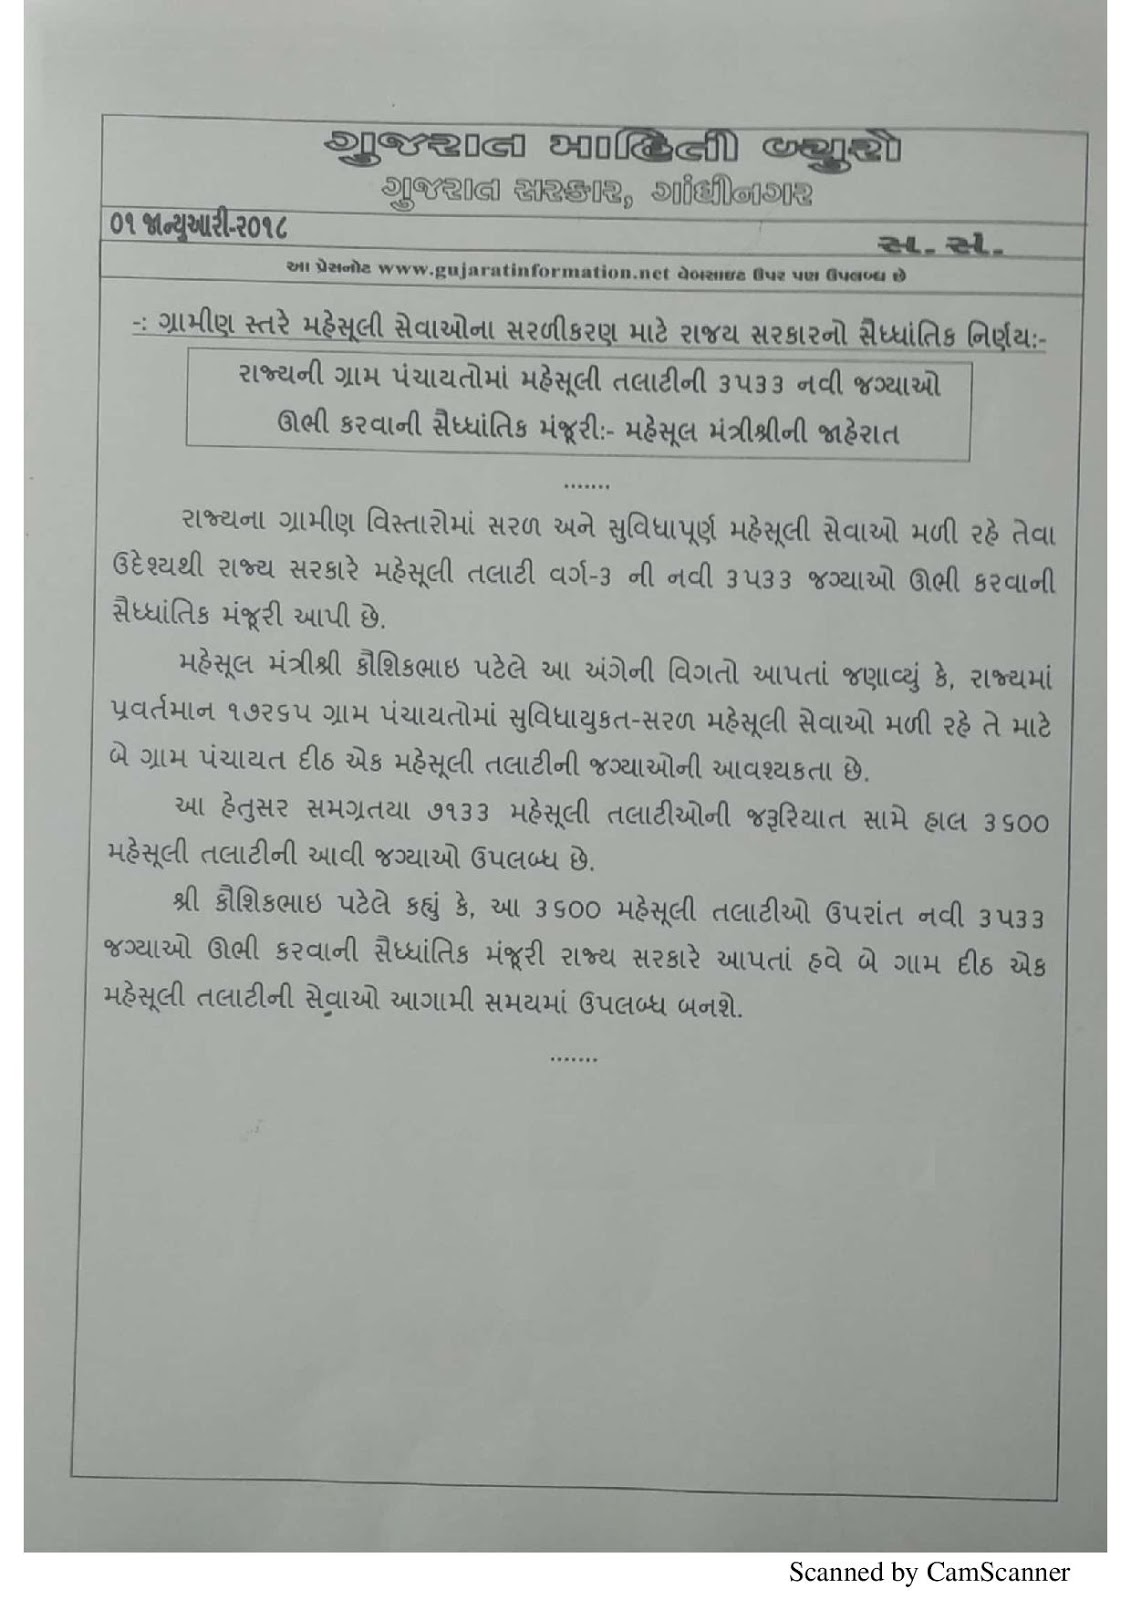 ગુજરાત માહિતી બ્યુરો
ગુજરાત સરકાર, ગાંધીનગર
૦૧ જાન્યુઆરી-૨૦૧૮
સ. સં.
આ પ્રેસનોટ www.gujaratinformation.net વેબસાઇટ ઉપર પણ ઉપલબ્ધ છે
-: ગ્રામીણ સ્તરે મહેસૂલી સેવાઓના સરળીકરણ માટે રાજય સરકારનો સૈધ્ધાંતિક નિર્ણય:-
રાજ્યની ગ્રામ પંચાયતોમાં મહેસૂલી તલાટીની ૩૫૩૩ નવી જગ્યાઓ
ઊભી કરવાની સૈધ્ધાંતિક મંજૂરી:- મહેસૂલ મંત્રીશ્રીની જાહેરાત
.......
રાજ્યના ગ્રામીણ વિસ્તારોમાં સરળ અને સુવિધાપૂર્ણ મહેસૂલી સેવાઓ મળી રહે તેવા
ઉદેશ્યથી રાજ્ય સરકારે મહેસૂલી તલાટી વર્ગ-૩ ની નવી ૩૫૩૩ જગ્યાઓ ઊભી કરવાની
સૈધ્ધાંતિક મંજૂરી આપી છે.
મહેસૂલ મંત્રીશ્રી કૌશિકભાઇ પટેલે આ અંગેની વિગતો આપતાં જણાવ્યું કે, રાજ્યમાં
પ્રવર્તમાન ૧૭૨૬૫ ગ્રામ પંચાયતોમાં સુવિધાયુકત-સરળ મહેસૂલી સેવાઓ મળી રહે તે માટે
બે ગ્રામ પંચાયત દીઠ એક મહેસૂલી તલાટીની જગ્યાઓની આવશ્યકતા છે.
આ હેતુસર સમગ્રતયા ૭૧૩૩ મહેસૂલી તલાટીઓની જરૂરિયાત સામે હાલ ૩૬૦૦
મહેસૂલી તલાટીની આવી જગ્યાઓ ઉપલબ્ધ છે.
શ્રી કૌશિકભાઇ પટેલે કહ્યું કે, આ ૩૬૦૦ મહેસૂલી તલાટીઓ ઉપરાંત નવી ૩૫૩૩
જગ્યાઓ ઊભી કરવાની સૈધ્ધાંતિક મંજૂરી રાજ્ય સરકારે આપતાં હવે બે ગામ દીઠ એક
મહેસૂલી તલાટીની સેવાઓ આગામી સમયમાં ઉપલબ્ધ બનશે.
.......
Scanned by CamScanner